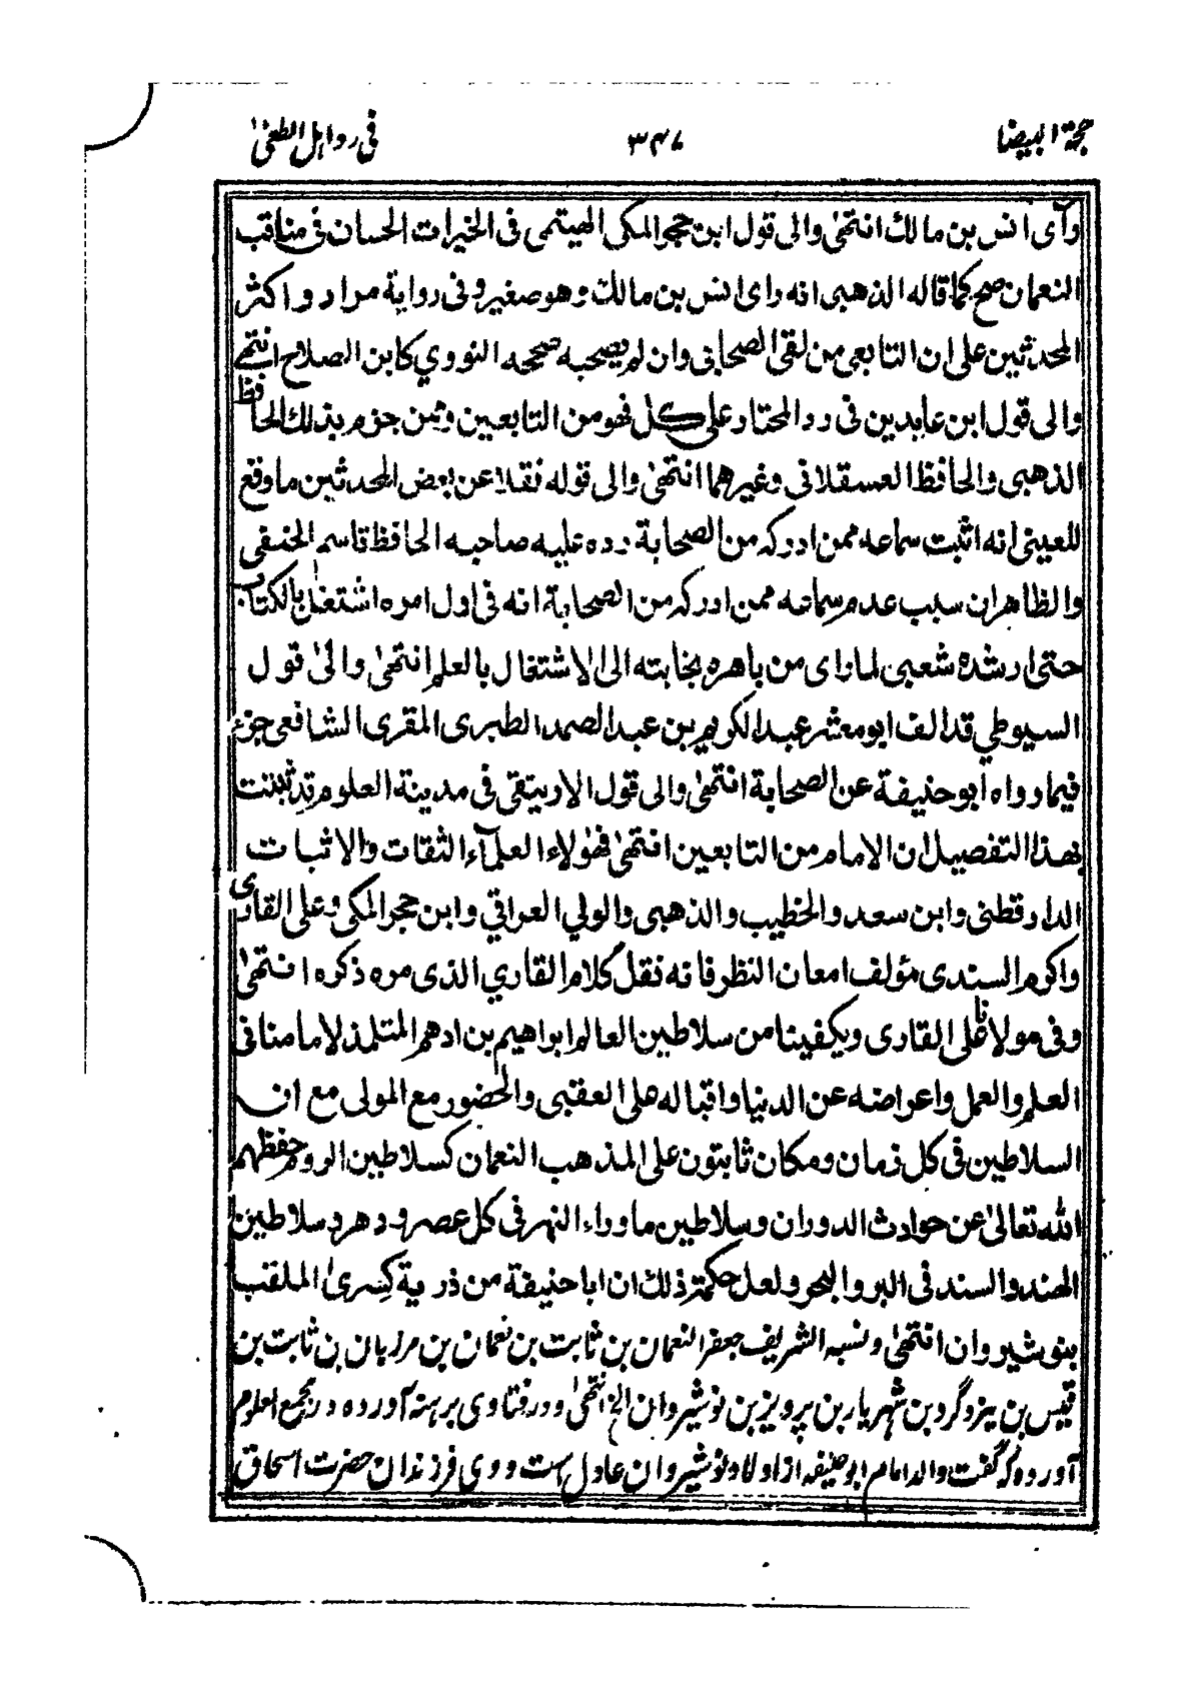 حجة البيضا ۳۴۷ فی رد اہل الطغیٰ
رآی انس بن مالك انتهیٰ والی قول ابن حجر المکی الهیتمی فی الخیرات الحسان فی مناقب
النعمان صح کما قاله الذهبی انه رای انس بن مالك وهو صغیر وفی روایة مرار و اکثر
المحدثین علی ان التابعی من لقی الصحابی وان لم یصحبه صححه النووي کابن الصلاح انتهے
والی قول ابن عابدین فی رد المحتار علی کل فهو من التابعین وممن جزم بذلك الحافظ
الذهبی والحافظ العسقلانی وغیرهما انتهیٰ والی قوله نقلا عن بعض المحدثین ما وقع
للعینی انه اثبت سماعه ممن ادرکه من الصحابة رده علیه صاحبه الحافظ قاسم الحنفی
والظاهر ان سبب عدم سماعه ممن ادرکه من الصحابة انه فی اول امره اشتغل بالکتاب
حتی ارشده شعبی لما رای من باهره بخابته الی الاشتغال بالعلم انتهیٰ والیٰ قول
السیوطي قد الف ابو معشر عبد الکریم بن عبد الصمد الطبری المقری الشافعی جزء
فیما رواه ابو حنیفة عن الصحابة انتهیٰ والی قول الاریتقی فی مدینة العلوم قد ثبتت
بهذا التفصیل ان الامام من التابعین انتهیٰ فهٰولاء العلمآء الثقات والاثبات
الدار قطنی وابن سعد والخطیب والذهبی والولي العراقي وابن حجر المکی وعلی القاری
واکرم السندی مؤلف امعان النظر فانه نقل کلام القاري الذی مره ذکره انتهیٰ
وفی مولانا علی القاری ویکفینا من سلاطین العالم ابراهیم بن ادهم المتلمذ لامامنا فی
العلم والعمل واعراضه عن الدنیا واقباله علی العقبی والحضور مع المولی مع ان
السلاطین فی کل زمان ومکان ثابتون علی المذهب النعمان کسلاطین الروم حفظهم
الله تعالیٰ عن حوادث الدوران وسلاطین ماوراء النهر فی کل عصر ودهر وسلاطین
الهند والسند فی البر والبحر ولعل حکمة ذلك ان ابا حنیفة من ذریة کسریٰ الملقب
بنوشیروان انتهیٰ ونسبه الشریف جعفر النعمان بن ثابت بن نعمان بن مرزبان بن ثابت بن
قیس بن یزدگرد بن شهریار بن پرویز بن نوشیروان الخ انتهیٰ ودر فتاوی برہنہ آورده در مجمع العلوم
آورده که گفت والد امام ابو حنیفه از اولاد نوشیروان عادل است و وی فرزندان حضرت اسحاق